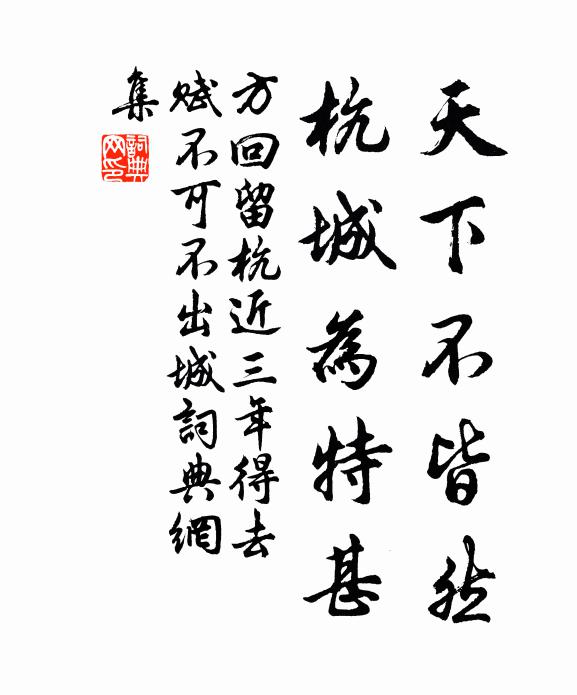 天下不皆然
杭城為特甚
方回留杭近三年得去
賦不可不出城詞典網
集
詞典網印